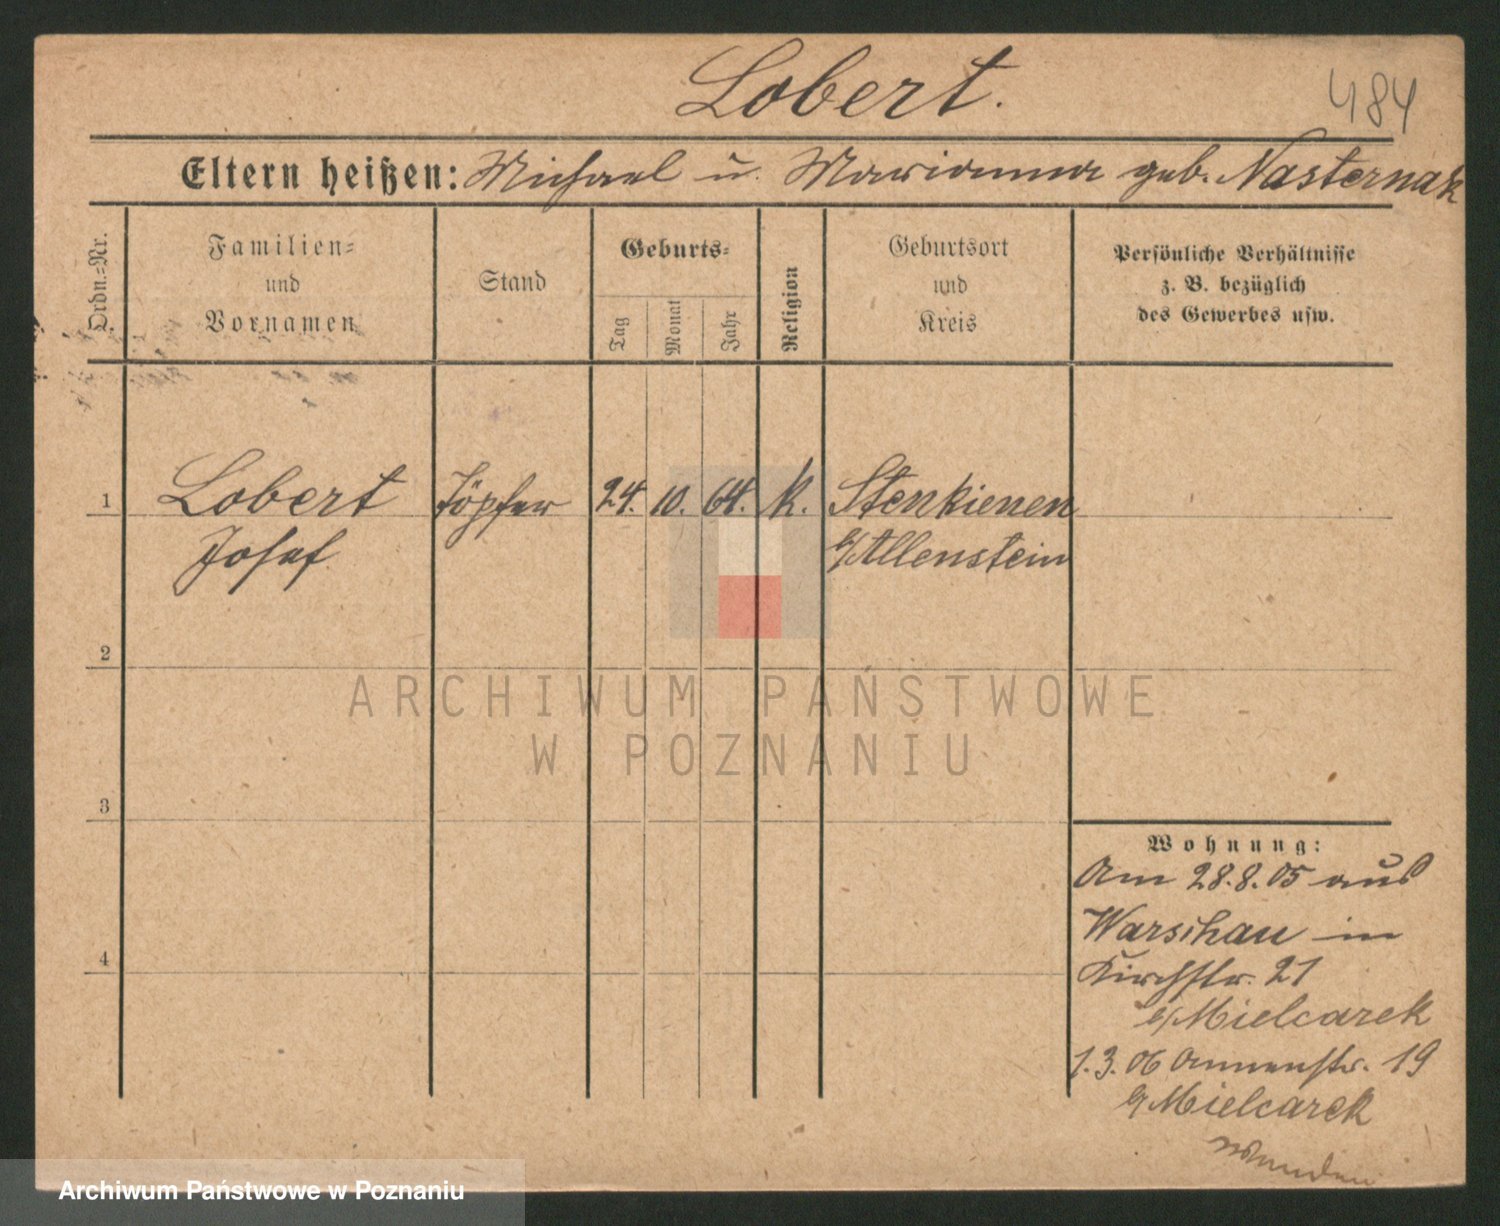 Lobert.
484
Eltern heißen: Michael u. Marianna geb. Nasternak
Ordn.=Nr.
Familien=
und
Vornamen
Stand
Geburts=
Tag
Monat
Jahr
Religion
Geburtsort
und
Kreis
Persönliche Verhältnisse
z. B. bezüglich
des Gewerbes usw.
1 Lobert Töpfer 24. 10. 64. K. Stenkienen
Josef b/Allenstein
2
ARCHIWUM PAŃSTWOWE
W POZNANIU
3
Wohnung:
Am 28.8.05 aus
Warschau in
4
Kirchstr. 21
b/Mielcarek
1.3.06 Annenstr. 19
b/Mielcarek
wenden
Archiwum Państwowe w Poznaniu